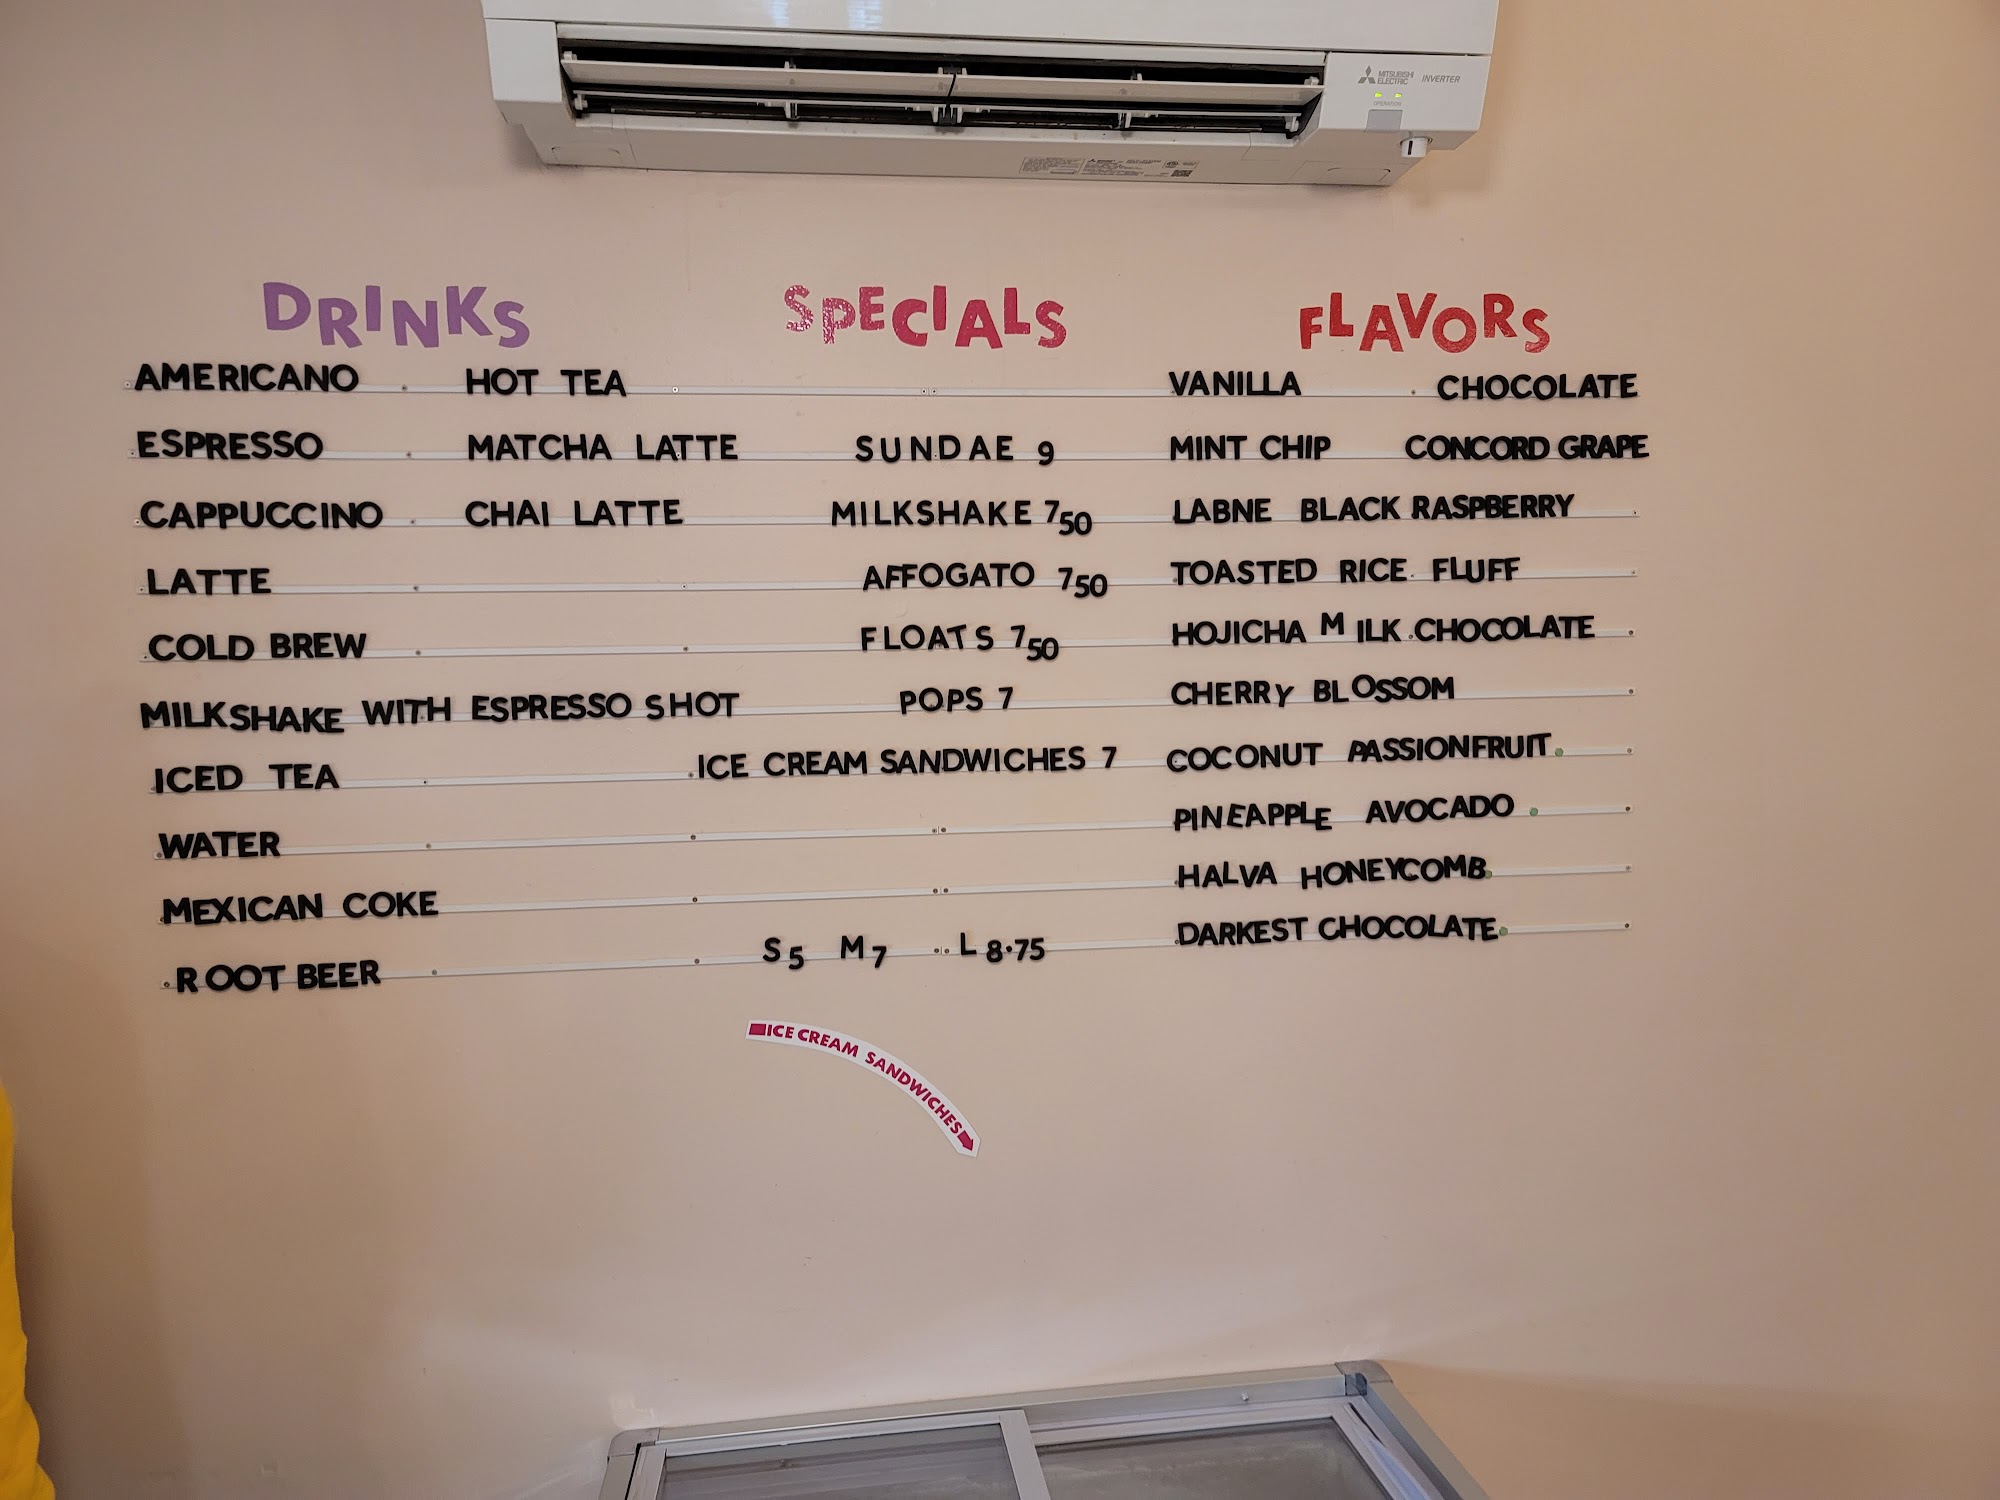 MITSUBISHI ELECTRIC INVERTER
OPERATION
DRINKS
AMERICANO HOT TEA
ESPRESSO MATCHA LATTE
CAPPUCCINO CHAI LATTE
LATTE
COLD BREW
MILKSHAKE WITH ESPRESSO SHOT
ICED TEA
WATER
MEXICAN COKE
ROOT BEER
SPECIALS
SUNDAE 9
MILKSHAKE 750
AFFOGATO 750
FLOATS 750
POPS 7
ICE CREAM SANDWICHES 7
S5 M7 L 8.75
FLAVORS
VANILLA CHOCOLATE
MINT CHIP CONCORD GRAPE
LABNE BLACK RASPBERRY
TOASTED RICE FLUFF
HOJICHA MILK CHOCOLATE
CHERRY BLOSSOM
COCONUT PASSIONFRUIT
PINEAPPLE AVOCADO
HALVA HONEYCOMB
DARKEST CHOCOLATE
ICE CREAM SANDWICHES